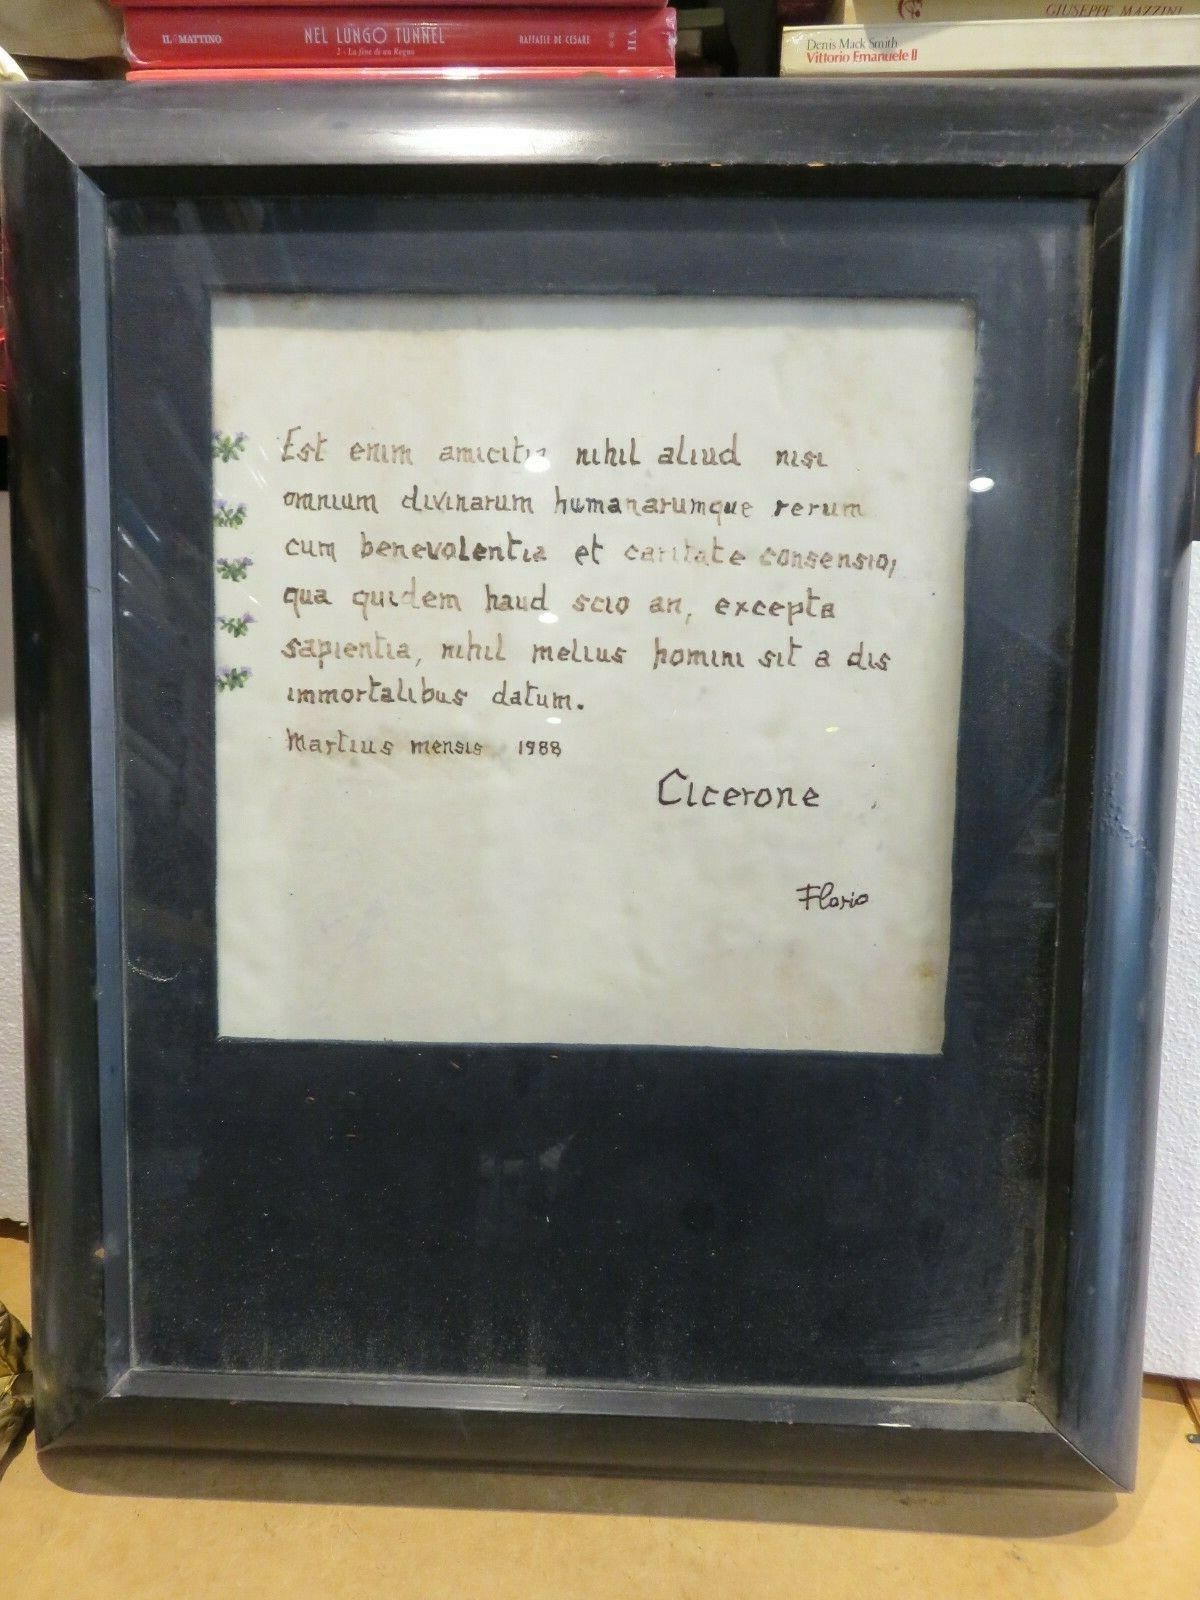 IL MATTINO NEL LUNGO TUNNEL RAFFAELE DE CESARE VII
2 - La fine di un Regno
GIUSEPPE MAZZINI
Denis Mack Smith
Vittorio Emanuele II
Est enim amicitia nihil aliud nisi
omnium divinarum humanarumque rerum
cum benevolentia et caritate consensio,
qua quidem haud scio an, excepta
sapientia, nihil melius homini sit a dis
immortalibus datum.
Martius mensis 1988
Cicerone
Florio